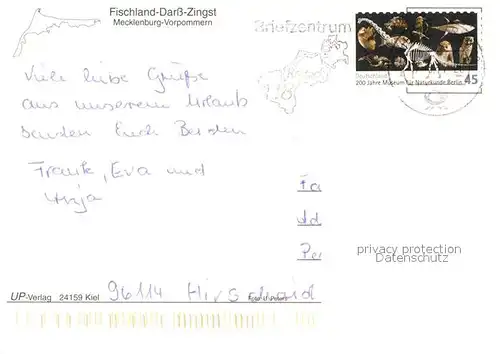 Fischland-Darß-Zingst
Mecklenburg-Vorpommern
Briefzentrum
Deutschland
200 Jahre Museum für Naturkunde Berlin 45
Viele liebe Grüße
aus unserem Urlaub
senden Euch Beiden
Frank, Eva und
Anja
Fa
Ad
Pe
privacy protection
Datenschutz
UP-Verlag 24159 Kiel
96114 Hirschaid